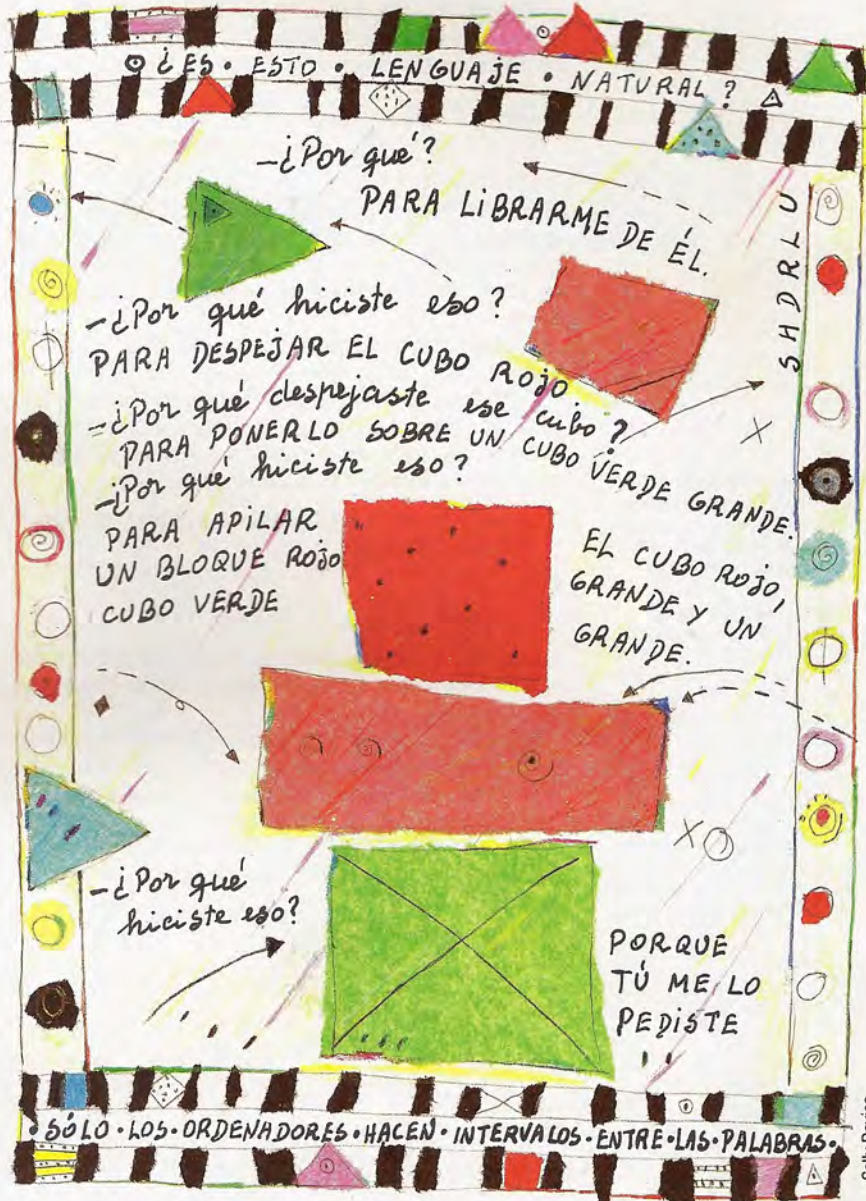 ¿ES · ESTO · LENGUAJE · NATURAL?
-¿Por qué?
PARA LIBRARME DE ÉL.
SHDRLU
-¿Por qué hiciste eso?
PARA DESPEJAR EL CUBO ROJO
-¿Por qué despejaste ese cubo?
PARA PONERLO SOBRE UN CUBO VERDE GRANDE.
-¿Por qué hiciste eso?
PARA APILAR
UN BLOQUE ROJO
CUBO VERDE
EL CUBO ROJO,
GRANDE Y UN
GRANDE.
-¿Por qué
hiciste eso?
PORQUE
TÚ ME LO
PEDISTE
· SÓLO · LOS · ORDENADORES · HACEN · INTERVALOS · ENTRE · LAS · PALABRAS ·